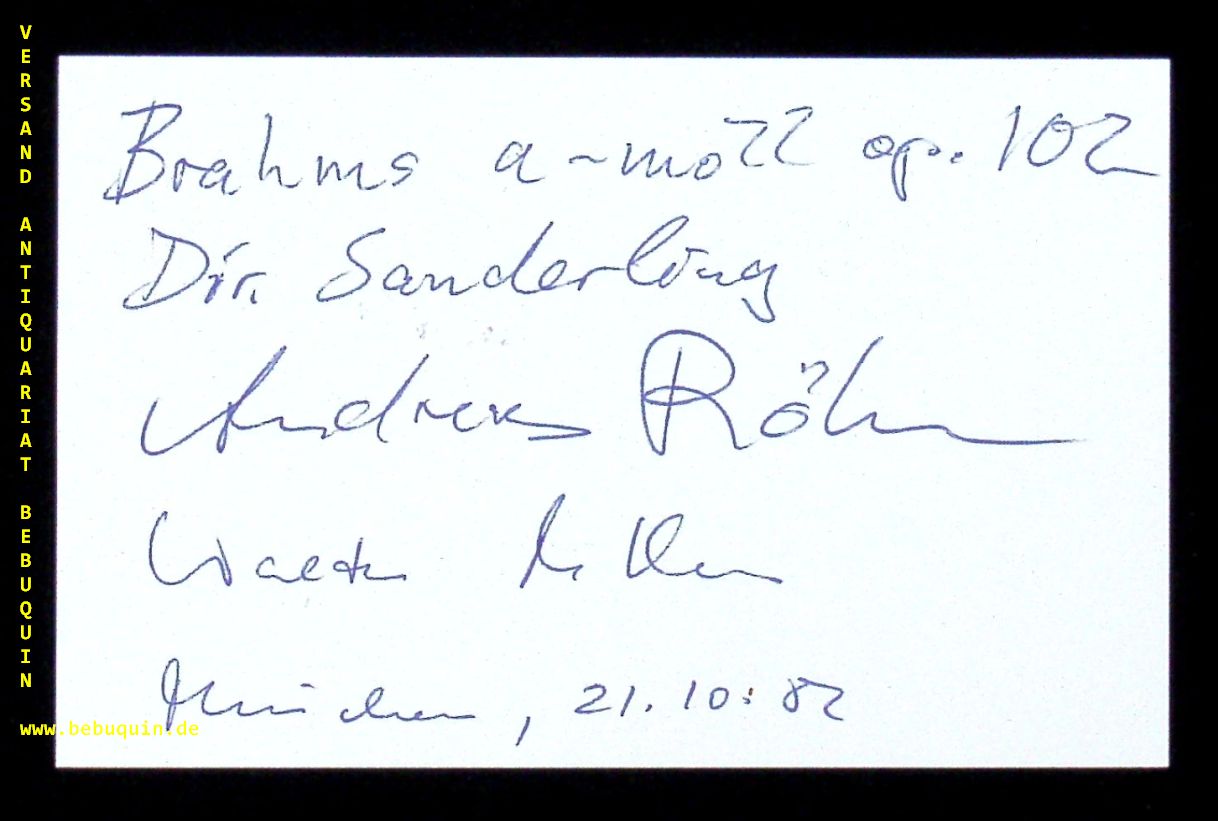 VERSAND ANTIQUARIAT BEBUQUIN
Brahms a-moll op. 102
Dir. Sanderling
Andreas Röhn
Walter
München, 21.10.82
www.bebuquin.de